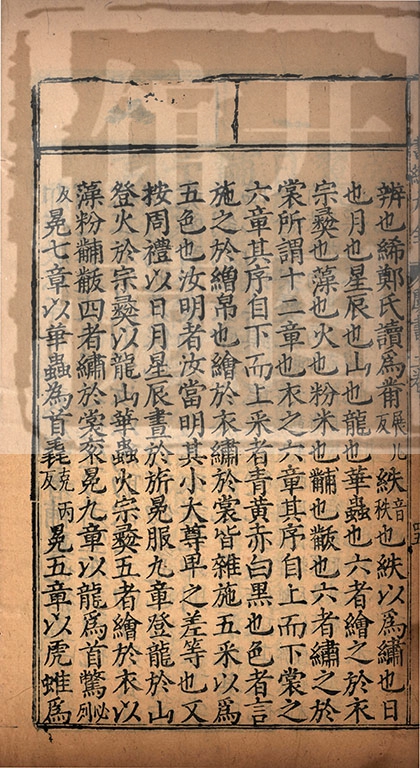 辨也絺鄭氏讀爲黹展儿反紩音秩也紩以爲繡也日
也月也星辰也山也龍也華蟲也六者繪之於衣
宗彝也藻也火也粉米也黼也黻也六者繡之於
裳所謂十二章也衣之六章其序自上而下裳之
六章其序自下而上采者青黃赤白黑也色者言
施之於繒帛也繪於衣繡於裳皆雜施五采以爲
五色也汝明者汝當明其小大尊卑之差等也又
按周禮以日月星辰畫於旂冕服九章登龍於山
登火於宗彝以龍山華蟲火宗彝五者繪於衣以
藻粉黼黻四者繡於裳袞冕九章以龍爲首鷩必列
反冕七章以華蟲爲首毳克丙反冕五章以虎蜼爲